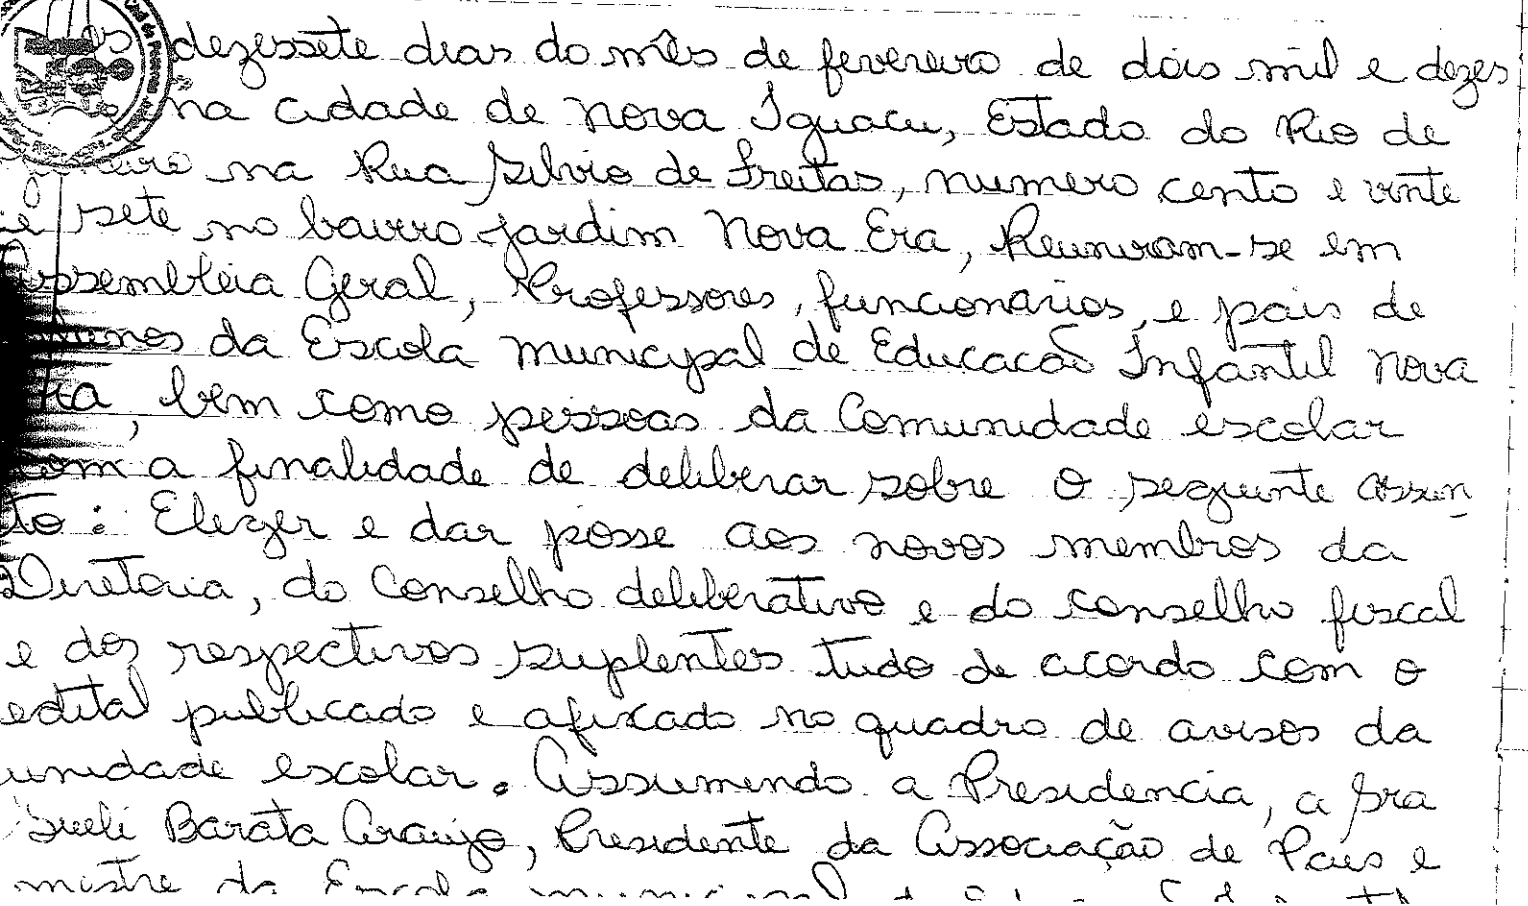 dezessete dias do mês de fevereiro de dois mil e dezes
na cidade de Nova Iguacu, Estado do Rio de
na Rua Silvio de Freitas, numero cento e vinte
e sete no bairro jardim Nova Era, Reuniram-se em
Assembléia Geral, Professores, funcionarios, e pais de
alunos da Escola municipal de Educacão Infantil Nova
Era, bem como pessoas da Comunidade escolar
com a finalidade de deliberar sobre o seguinte assun
to: Eleger e dar posse aos novos membros da
Diretoria, do Conselho deliberativo e do conselho fiscal
e dos respectivos suplentes tudo de acordo com o
edital publicado e afixado no quadro de avisos da
unidade escolar. Assumindo a Presidencia, a Sra
Sueli Barata Araujo, Presidente da Associação de Pais e
mestre da Escola municipal de